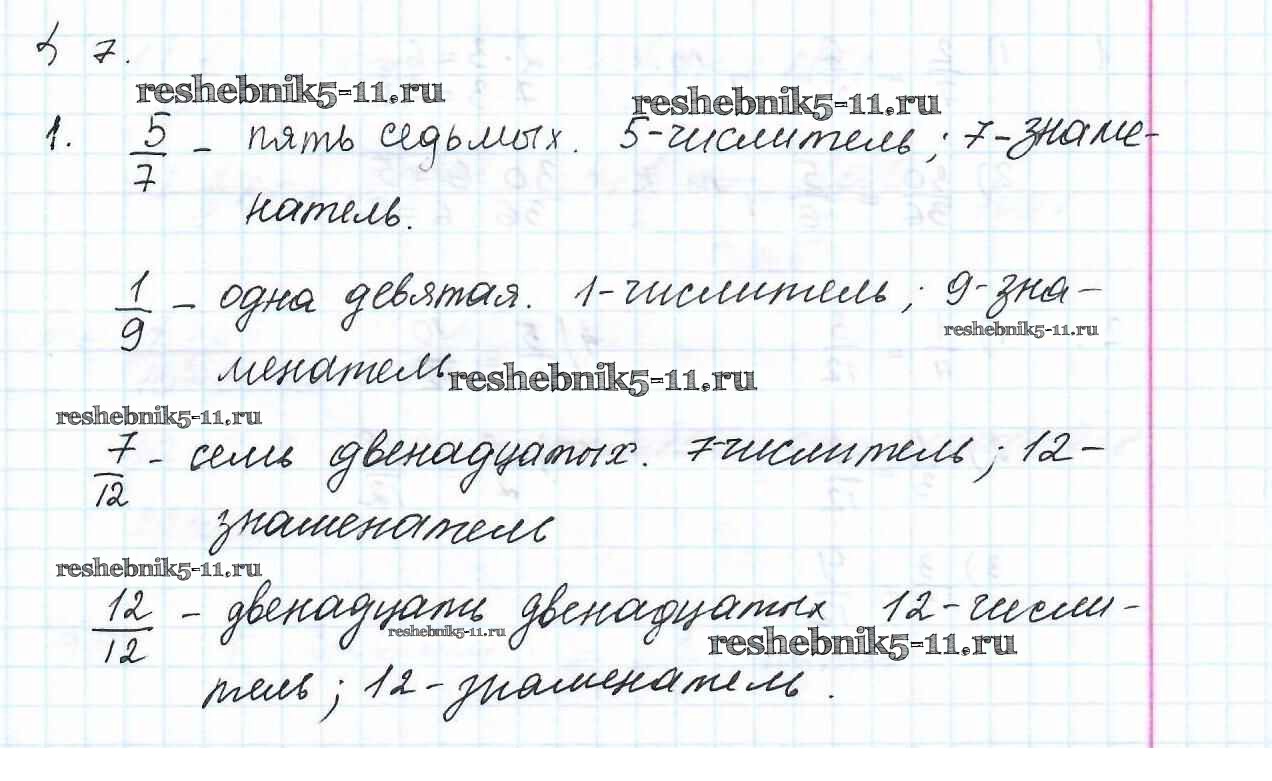 § 7.
reshebnik5-11.ru reshebnik5-11.ru
1. 5/7 - пять седьмых. 5-числитель; 7-знаме-
натель.
1/9 - одна девятая. 1-числитель; 9-зна-
reshebnik5-11.ru
менатель reshebnik5-11.ru
reshebnik5-11.ru
7/12 - семь двенадцатых. 7-числитель; 12-
знаменатель
reshebnik5-11.ru
12/12 - двенадцать двенадцатых 12-числи-
reshebnik5-11.ru reshebnik5-11.ru
тель; 12-знаменатель.